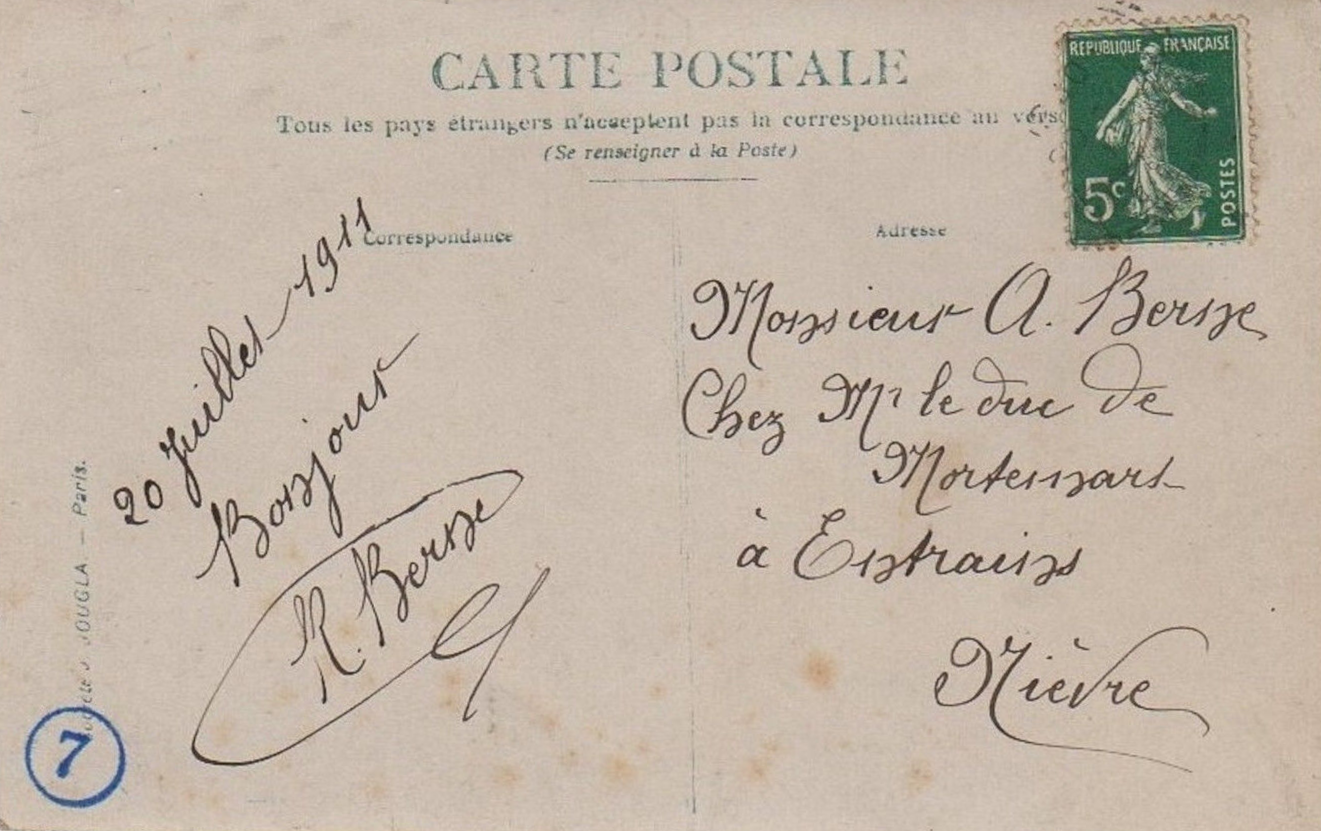 CARTE POSTALE
Tous les pays étrangers n'acceptent pas la correspondance au verso
(Se renseigner à la Poste)
RÉPUBLIQUE FRANÇAISE
5c
POSTES
Correspondance
Adresse
20 Juillet 1911
Bonjour
R. Berne
Monsieur A. Berne
Chez Mr le duc de
Mortemart
à Entrains
Nièvre
JOUGLA. — Paris.
7